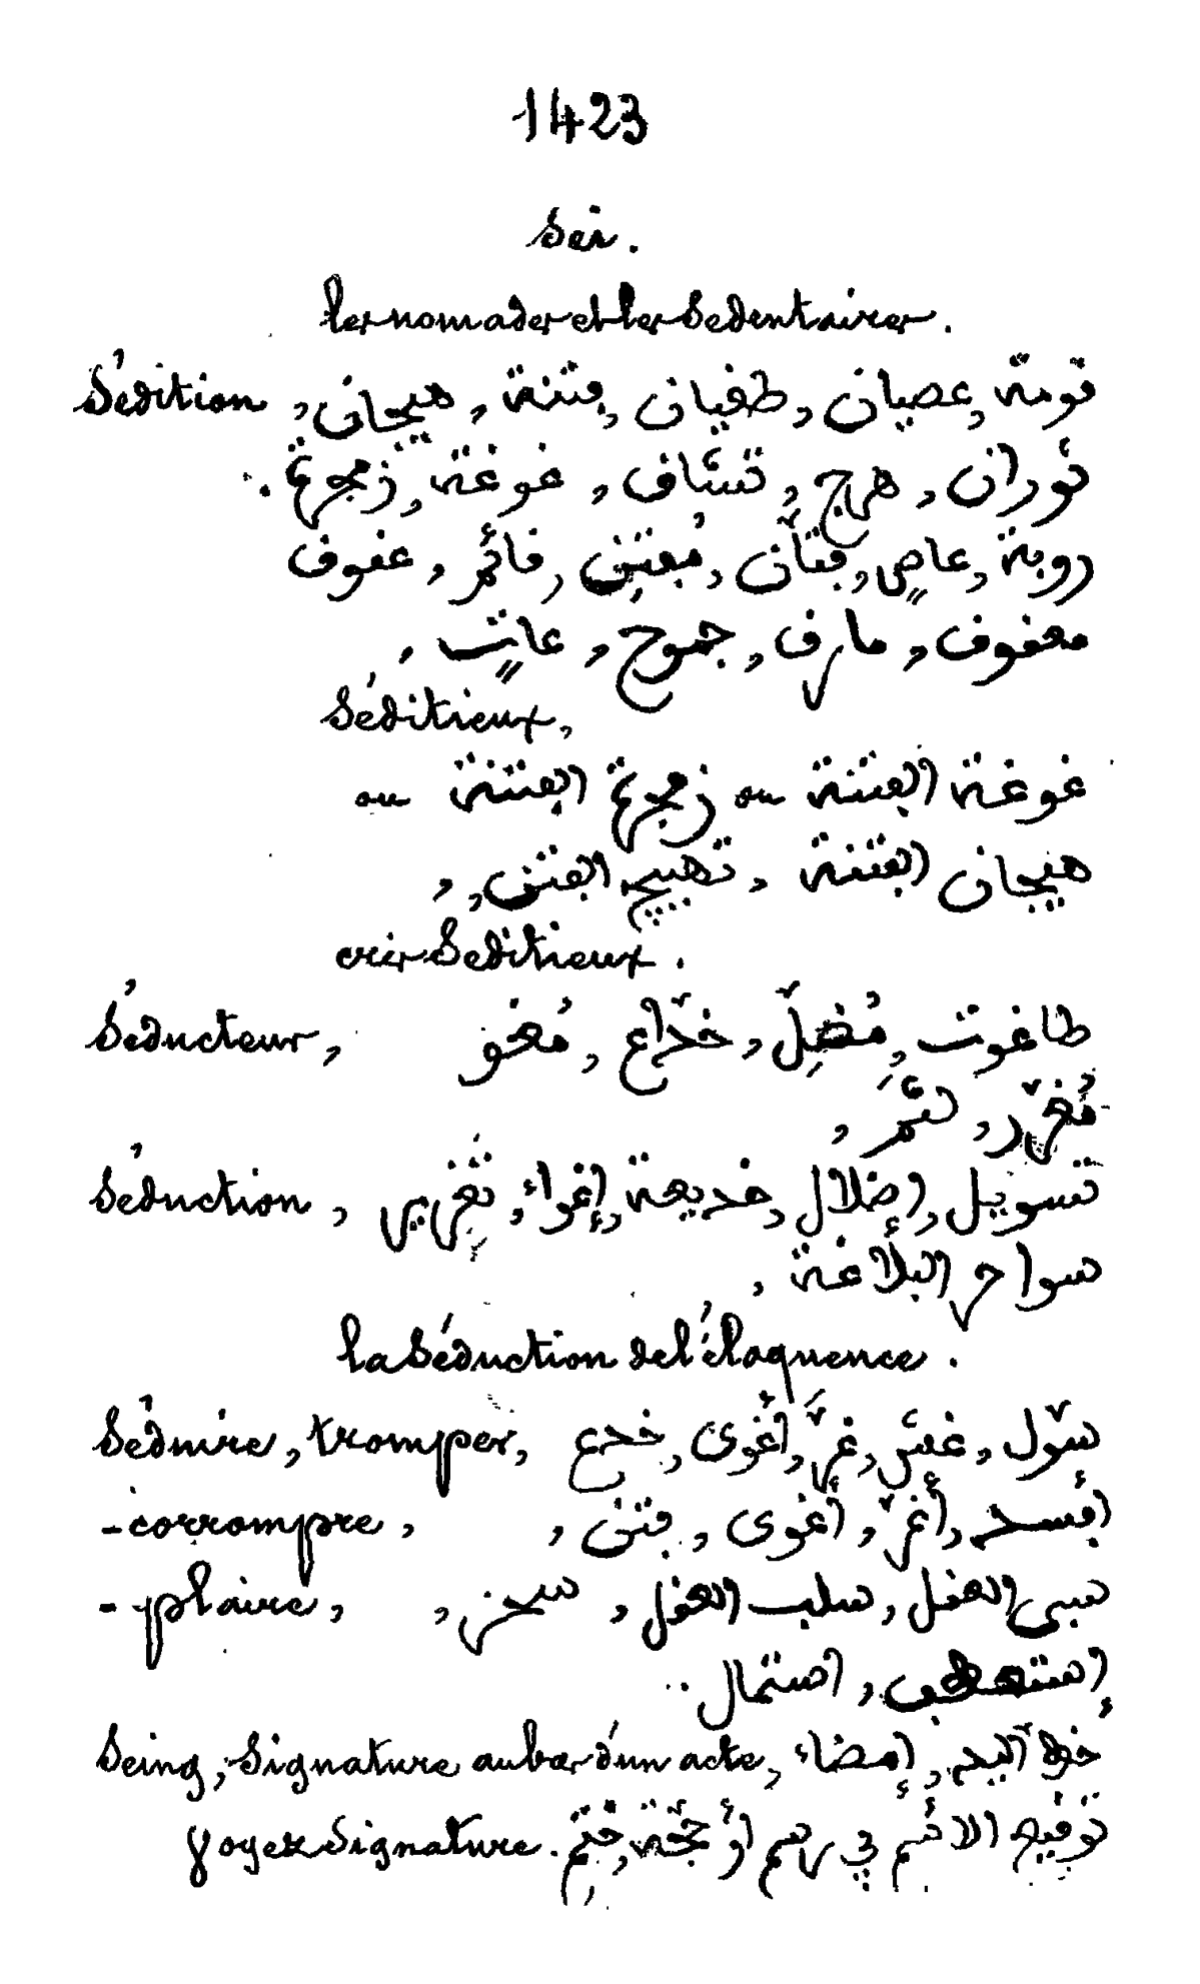 1423
Sei.
les nomades et les Sedentaires.
Sédition, قومة, عصيان, طغيان, فتنة, هيجان,
ثوران, هرج, غوغة, زمجرة.
عاصٍ, فتّان, مُفتِن,
جموح, عاتٍ,
Séditieux,
غوغة الفتنة ou زمجرة الفتنة ou
هيجان الفتنة, تهييج الفتن,
cris Seditieux.
Séducteur, طاغوت, مُضِلّ, خدّاع, مُغو
مُغرّر,
Séduction, تسويل, إضلال, خديعة, إغواء, تغرير
البلاغة,
la Séduction de l'éloquence.
Séduire, tromper, سوّل, غشّ, غرّ, أغوى, خدع
-corrompre, أغرّ, أغوى, فتن,
-plaire, سبى العقل, سلب العقل,
استمال..
Seing, Signature au bas d'un acte, خطّ اليد, إمضاء
Voyez Signature. في رسم أو حجّة, ختم